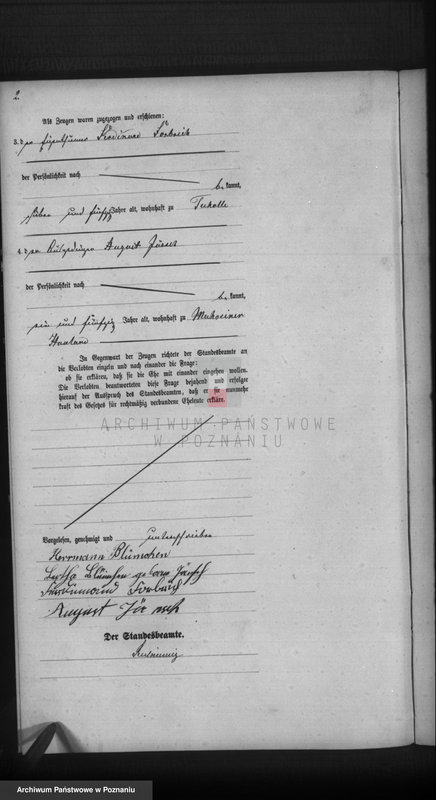 2.
Als Zeugen waren zugezogen und erschienen:
3. der Eigenthümer Ferdinand
der Persönlichkeit nach
be kannt,
sieben und fünfzig Jahre alt, wohnhaft zu
4. der August
der Persönlichkeit nach
be kannt,
ein und fünfzig Jahre alt, wohnhaft zu
Hauland
In Gegenwart der Zeugen richtete der Standesbeamte an
die Verlobten einzeln und nach einander die Frage:
ob sie erklären, daß sie die Ehe mit einander eingehen wollen.
Die Verlobten beantworteten diese Frage bejahend und erfolgte
hierauf der Ausspruch des Standesbeamten, daß er sie nunmehr
kraft des Gesetzes für rechtmäßig verbundene Eheleute erkläre.
ARCHIWUM PAŃSTWOWE
W POZNANIU
Vorgelesen, genehmigt und unterschrieben
Herrmann Blümchen
Blümchen geborne
August
Der Standesbeamte.
Archiwum Państwowe w Poznaniu